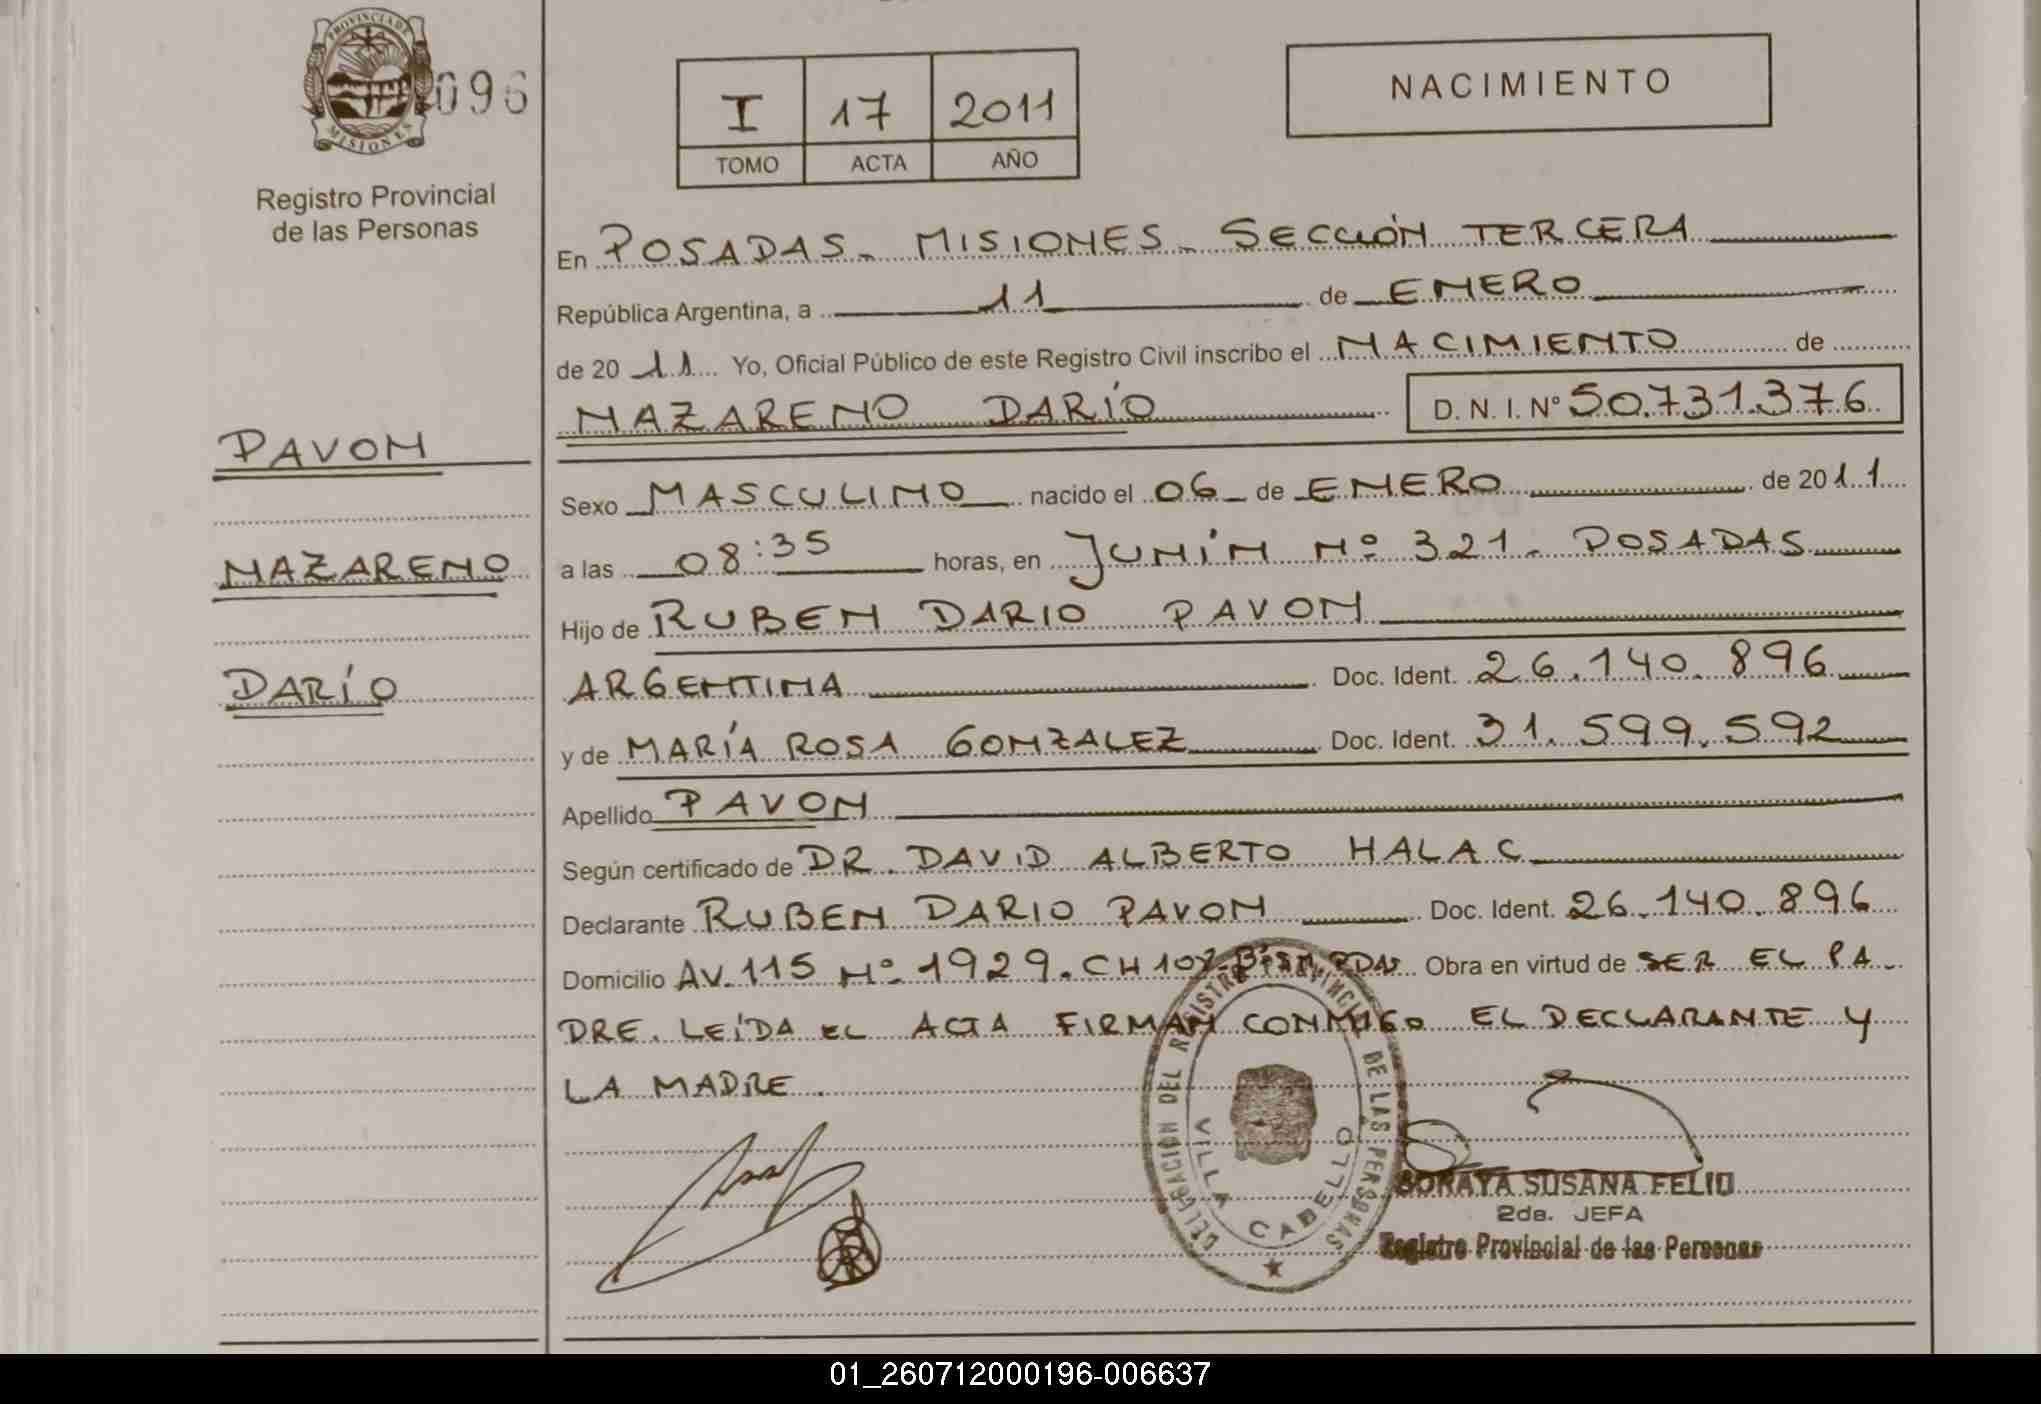 PROVINCIA DE
MISIONES
096
Registro Provincial
de las Personas
I 17 2011
TOMO ACTA AÑO
NACIMIENTO
En POSADAS - MISIONES - SECCIÓN TERCERA
República Argentina, a 11 de ENERO
de 20 11 Yo, Oficial Público de este Registro Civil inscribo el NACIMIENTO de
NAZARENO DARÍO D. N. I. N° 50.731.376
PAVON
NAZARENO
DARÍO
Sexo MASCULINO nacido el 06 de ENERO de 2011
a las 08:35 horas, en JUNÍN Nº 321 - POSADAS
Hijo de RUBEN DARIO PAVON
ARGENTINA Doc. Ident. 26.140.896
y de MARÍA ROSA GONZALEZ Doc. Ident. 31.599.592
Apellido PAVON
Según certificado de DR. DAVID ALBERTO HALAC
Declarante RUBEN DARIO PAVON Doc. Ident. 26.140.896
Domicilio AV. 115 Nº 1929. CH 107 Obra en virtud de SER EL PA-
DRE. LEÍDA EL ACTA FIRMAN CONMIGO EL DECLARANTE Y
LA MADRE.
DELEGACION DEL REGISTRO PROVINCIAL DE LAS PERSONAS
VILLA CABELLO
SORAYA SUSANA FELIU
2da. JEFA
Registro Provincial de las Personas
01_260712000196-006637